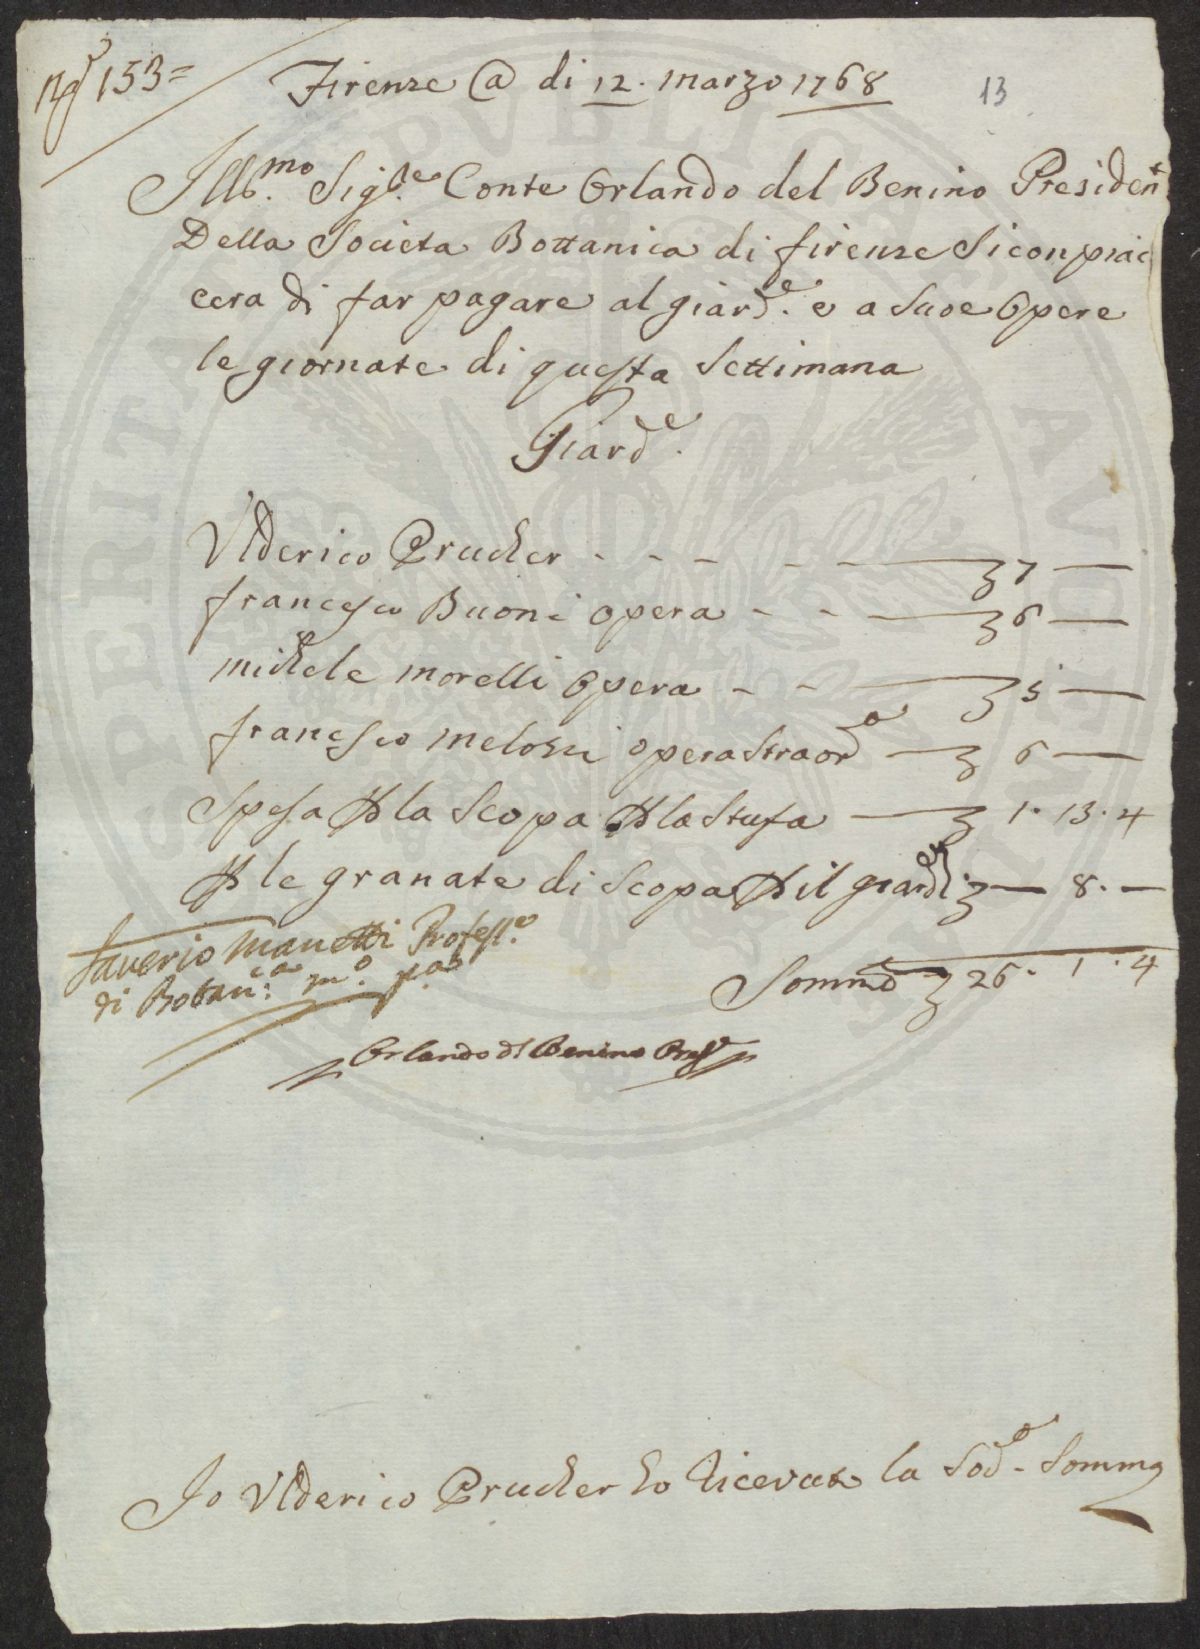 No 153=
Firenze @ di 12. marzo 1768
13
Ill.mo Sig.re Conte Orlando del Benino Presiden.t
Della Societa Bottanica di firenze Si conpiac
cera di far pagare al giard.e e a Sue Opere
le giornate di questa Settimana
Giard.e
Ulderico Prucher - - - - - ʒ 7 —
francesco Buoni opera - - - ʒ 6 —
michele morelli Opera - - ʒ 5 —
francesco melozzi opera Straord.a — ʒ 6 —
Spesa P la Scopa P la Stufa — ʒ 1. 13. 4
P le granate di Scopa P il giard. ʒ — 8. —
Somma ʒ 26. 1. 4
Saverio Manetti Profess.e
di Botan.ca m.o p.a
Orlando del Benino Pres.e
Io Ulderico Prucher ho Ricevute la Sod.a Somma
PUBLICA
PERITA